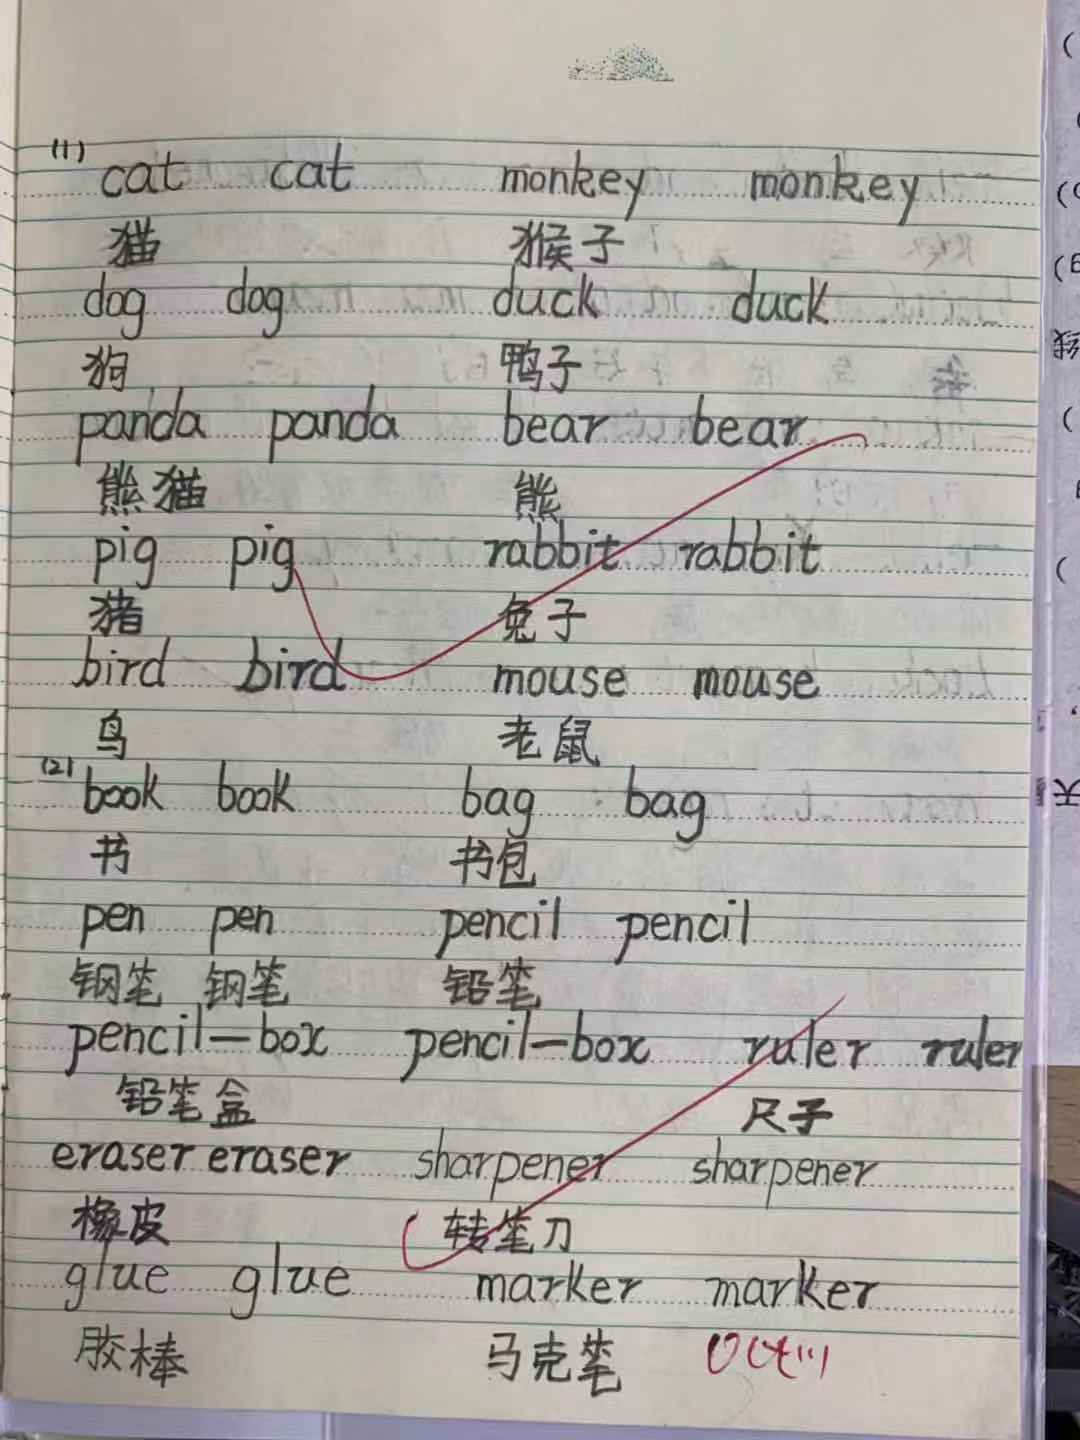 (1) cat cat monkey monkey
猫 猴子
dog dog duck duck
狗 鸭子
panda panda bear bear
熊猫 熊
pig pig rabbit rabbit
猪 兔子
bird bird mouse mouse
鸟 老鼠
(2) book book bag bag
书 书包
pen pen pencil pencil
钢笔 钢笔 铅笔
pencil-box pencil-box ruler ruler
铅笔盒 尺子
eraser eraser sharpener sharpener
橡皮 转笔刀
glue glue marker marker
胶棒 马克笔
线
天